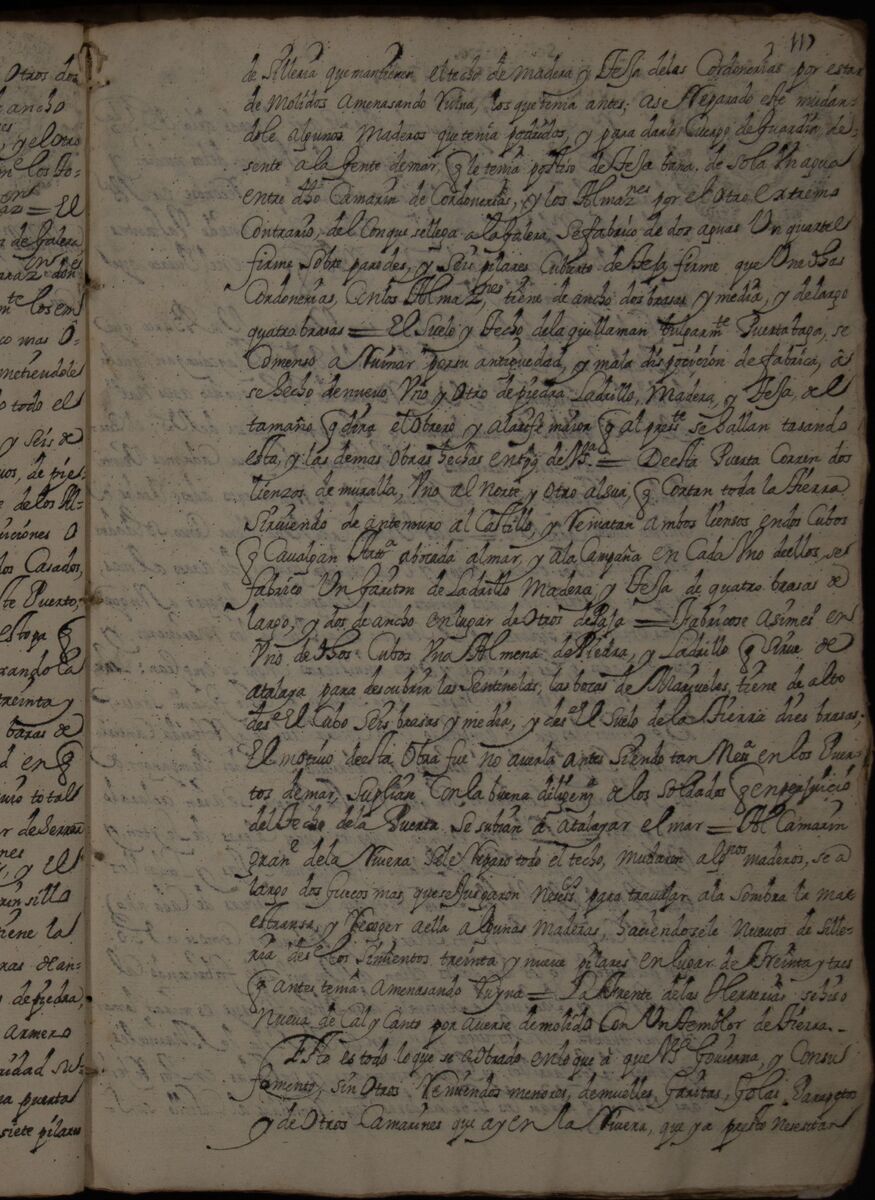 otros dos
de ancho
y el otro
El
de galera
los em
co mas o
metiendole
o todo el
y seis de
de pies
de los Al
uiciones o
los Casados,
te Puerto;
estopa
rando la
treinta y
baras de
d en
total
nes
y El
rinsillo
tiene la
ras de an-
de piedra,
armero
a puerta
siete pilares
117
de Silleria que mantienen el techo de madera y Teja delas Cordonerias por estar
de Molidos amenasando Ruina, los que tenia antes; ase Reparado este mudan-
dole algunos maderos que tenia podridos, y para darle Cuerpo de Guardia de-
sente a la gente demar, q le tenia postiso de Teja bana, de sola Vn agua
entre dho Camarin de Cordonerias, y los Almaz.nes por el otro extremo
Contrario, del Con que sellega a la galera, Se fabrico de dos aguas Un quartel
firme sobre paredes, y Seis pilares Cubierto de Teja firme que Une dhas
Cordonerias, Con los Almaz.nes, tiene de ancho dos brasas y media, y de largo
quatro brasas = El Suelo y Techo dela que llaman Vulgarm.te Puerta baga, se
Comenso a Ruinar por su antiguedad, y mala disposicion de fabrica, a
se hecho de nuevo Vno y Otro de piedra, Ladrillo, Madera, y Teja, del
tamaño q dira el Obrero y alarife maior q al pres.te se hallan tasando
esta, y las demas Obras hechas en tpo de V.ª = Decsta Puerta Corren dos
lienzos de muralla, Vno al Norte y Otro al sur, q Cortan toda la Tierra
Sirviendo de antemuro al Castillo, y Rematan ambos liensos en dos Cubos
q Caualgan Art.ª abocada al mar, y ala Campaña en Cada Vno dellos, se
fabrico Un fariton de Ladrillo Madera, y Teja de quatro brasas de
largo, y dos de ancho en lugar de Otros de Paja = Fabricose asimesmo en
Vno de dhos Cubos Vna Almena de Piedra, y Ladrillo q Sirve de
atalaya para descubrir las Sentinelas, las bocas de Mariveles, tiene de alto
des.e El Cubo Seis brasas y media, y des.e El Suelo de la Tierra dies brasas;
El motivo decsta Obra fue no averla antes siendo tan Nes.ª en los Puer-
tos de mar, suplian Con la buena dilig.ª de los soldados q en perjuicio
del Techo de la Puerta Se subian a atalayar el mar = Al Camarin
gran.e dela Rivera se le Reparo todo el techo, mudaron alg.nos maderos, se a
largo dos huecos mas, que se Jusgaron Neses.os para travajar a la Sombra la mar
estransa, y Recoger a ella algunas maderas, haciendosele nuevos de Sille-
ria des.e los Simientos treinta y nueve pilares en lugar de Treinta y tres
q antes tenia amenasando Ruyna = La Puente delas Herrerias se hiso
Nueva de Cal y Canto por averse demolido Con Un temblor de Tierra.-
Esto es todo lo que se a Obrado en lo que a que V.ª Gouierna, y Consu
fomento, sin Otros Remiendos menores, de muelles, Garitas, Parapetos
y de Otros Camarines que ay en la Rivera, que ya presto Nesesitan